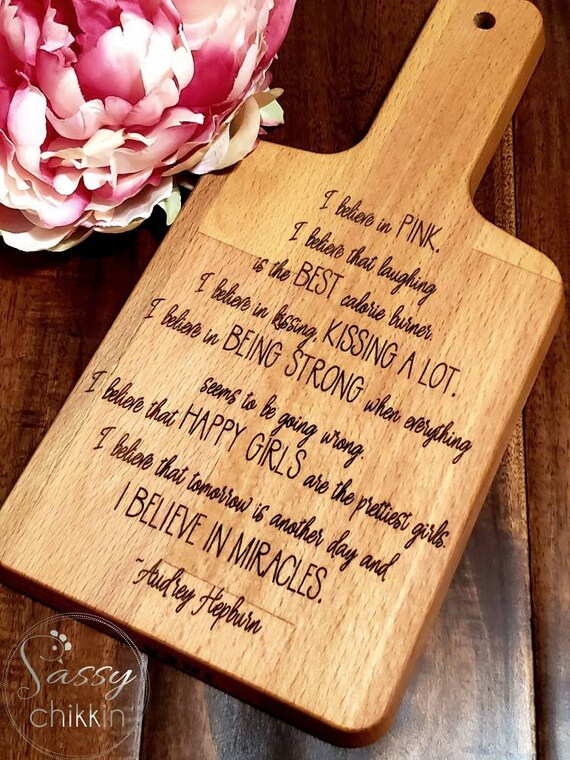 I believe in PINK.
I believe that laughing
is the BEST calorie burner.
I believe in kissing, KISSING A LOT.
I believe in BEING STRONG when everything
seems to be going wrong.
I believe that HAPPY GIRLS are the prettiest girls.
I believe that tomorrow is another day and
I BELIEVE IN MIRACLES.
~Audrey Hepburn
Sassy
chikkin